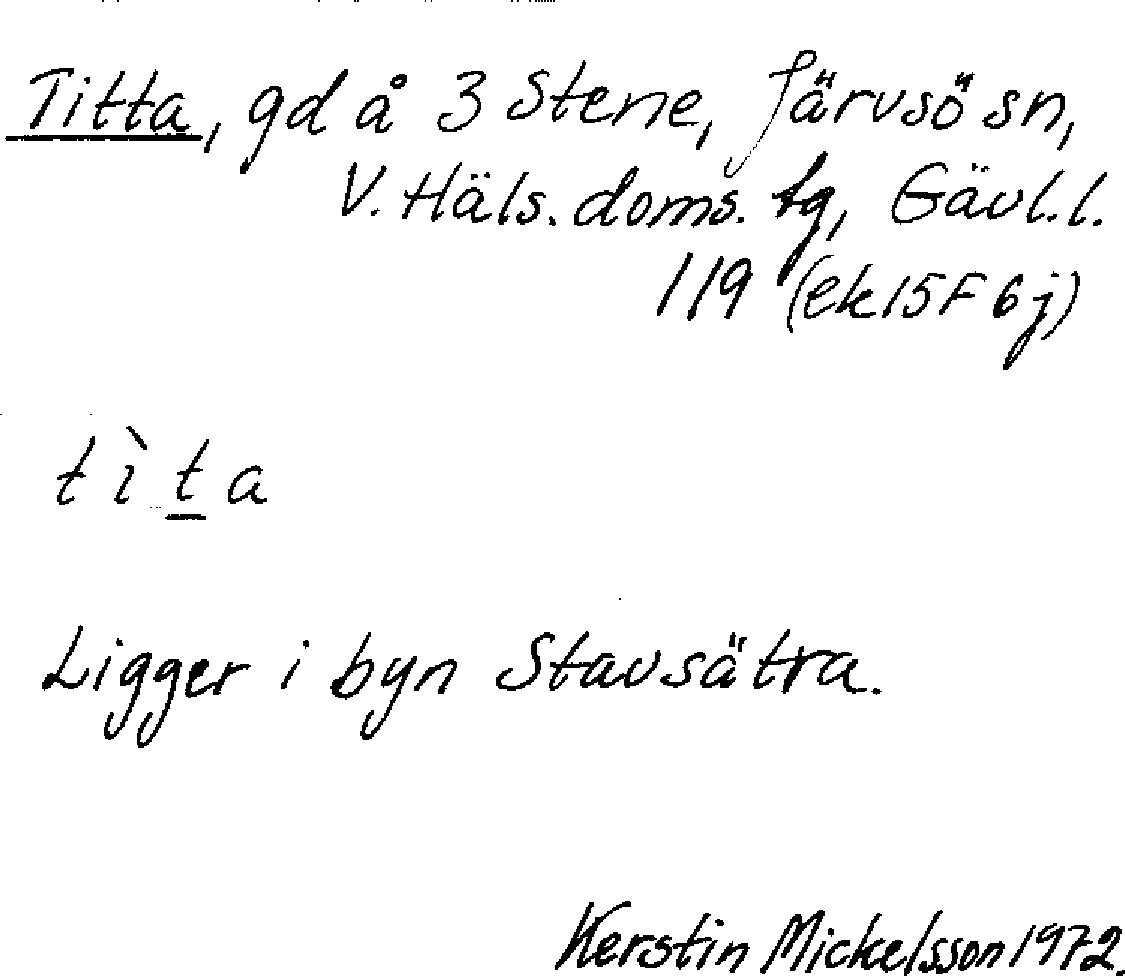 Titta, gd å 3 Stene, Järvsö sn,
V. Häls. doms. tg, Gävl. l.
119 (ek 15F 6j)
tìt̲a
Ligger i byn Stavsätra.
Kerstin Mickelsson 1972.